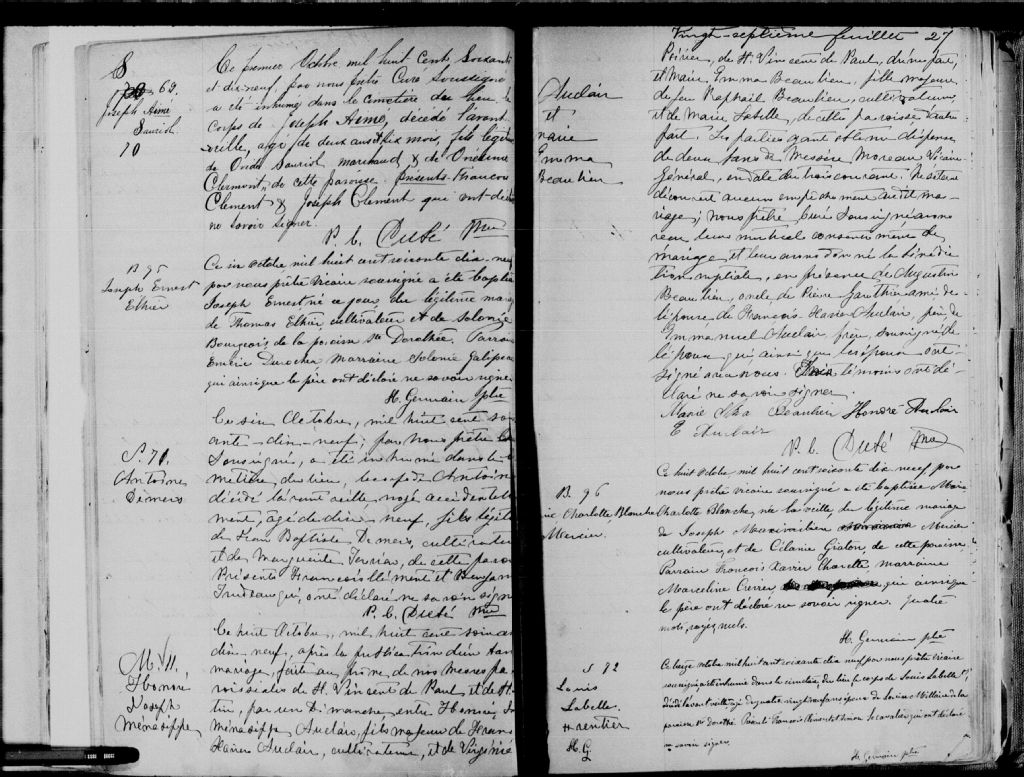 S
69.
Joseph Aimé
Sauriol.
10
Ce premier Octbre, mil huit cents soixante
et dix-neuf, par nous prêtre Curé soussigné
a été inhumé dans le cimetière du lieu le
corps de Joseph Aimé, décédé l'avant
veille, agé de deux ans et dix mois, fils légit
de Sauriol marchand & de Onésime
Clermont, de cette paroisse. Présents Francois
Clement & Joseph Clement qui ont décl
ne savoir signer.
P. C. Dubé Ptre
B 95
Joseph Ernest
Ethier
Ce six octobre mil huit cent soixante dix neuf
par nous prêtre vicaire soussigné a été baptisé
Joseph Ernest né ce jour du légitime mari
de Thomas Ethier cultivateur et de Solonie
Bourgeois de la paroisse Ste Dorothée. Parrain
Emerie Durocher Marraine Solonie Galipeau
qui ainsi que le père ont déclaré ne savoir signer
H. Germain ptre
S. 70.
Antoine
Demers
Ce six Octobre, mil huit cent soix
ante dix-neuf; par nous prêtre
soussigné, a été inhumé dans le ci
metière du lieu, le corps de Antoine
décédé l'avant veille, noyé accidentelle
ment, âgé de dix neuf, fils légiti
de Jean Baptiste Demers, cultivateur
et de Marguerite, de cette paroi
Présents Francois Clément et Benjamin
, ont déclaré ne savoir signer
P. C. Dubé Ptre
M. VII.
Honoré
Joseph
Ménésippe
Ce huit Octobre, mil huit cent soixante
dix neuf, après la publication d'un ban
mariage, faite au prône de nos messes pa
roissiales de St. Vincent de Paul et de St.
tin, par un Dimanche entre Honoré, Jo
Ménésippe Auclair, fils majeur de Fran
Xavier Auclair, cultivateur, et de Virginie
Vingt-septième feuillet 27
Auclair
et
Marie
Emma
Beaulieu
Poirier, de St. Vincent de Paul, d'une part,
et Marie, Emma Beaulieu, fille majeure
de feu Raphaël Beaulieu, cultivateur,
et de Marie Labelle, de cette paroisse d'autre
part. Les parties ayant obtenu dispense
de deux bans de Messire Moreau Vicaire
Général, en date du trois courant. Ne s'étant
découvert aucun empêchement au dit ma-
riage; nous prêtre Curé soussigné avons
recu leur mutuel consentement de
mariage et leur avons donné la bénédic
tion nuptiale, en présence de Augustin
Beaulieu, oncle de Pierre Gauthier ami de
l'épouse de Francois-Xavier Auclair, père, de
Emmanuel Auclair frère, soussigné de
l'époux qui ainsi que les époux ont
signé avec nous. témoins ont dé-
claré ne savoir signer.
Marie Beaulieu Honoré Auclair
E Auclair
P. C. Dubé Ptre
B. 96
Charlotte, Blanche
Mercier.
Ce huit octobre mil huit cent soixante dix neuf par
nous prêtre vicaire soussigné a été baptisée Marie
Charlotte Blanche, née la veille, du légitime mariage
de Joseph Maximilien Mercier
cultivateur, et de Célanie Graton, de cette paroisse.
Parrain François Xavier Charette marraine
Marceline Crevier qui ainsi que
le père ont déclaré ne savoir signer. Quatre
mots rayés nuls.
H. Germain ptre
S 72
Louis
Labelle.
rentier
H. G
Ce treize octobre mil huit cent soixante dix neuf par nous prêtre vicaire
soussigné a été inhumé dans le cimetière du lieu, le corps de Louis Labelle,
décédé l'avant veille agé de quatre vingt un ans époux de Louise de la
paroisse Ste Dorothé. Présents François Clément et qui ont déclaré
ne savoir signer.
H. Germain ptre